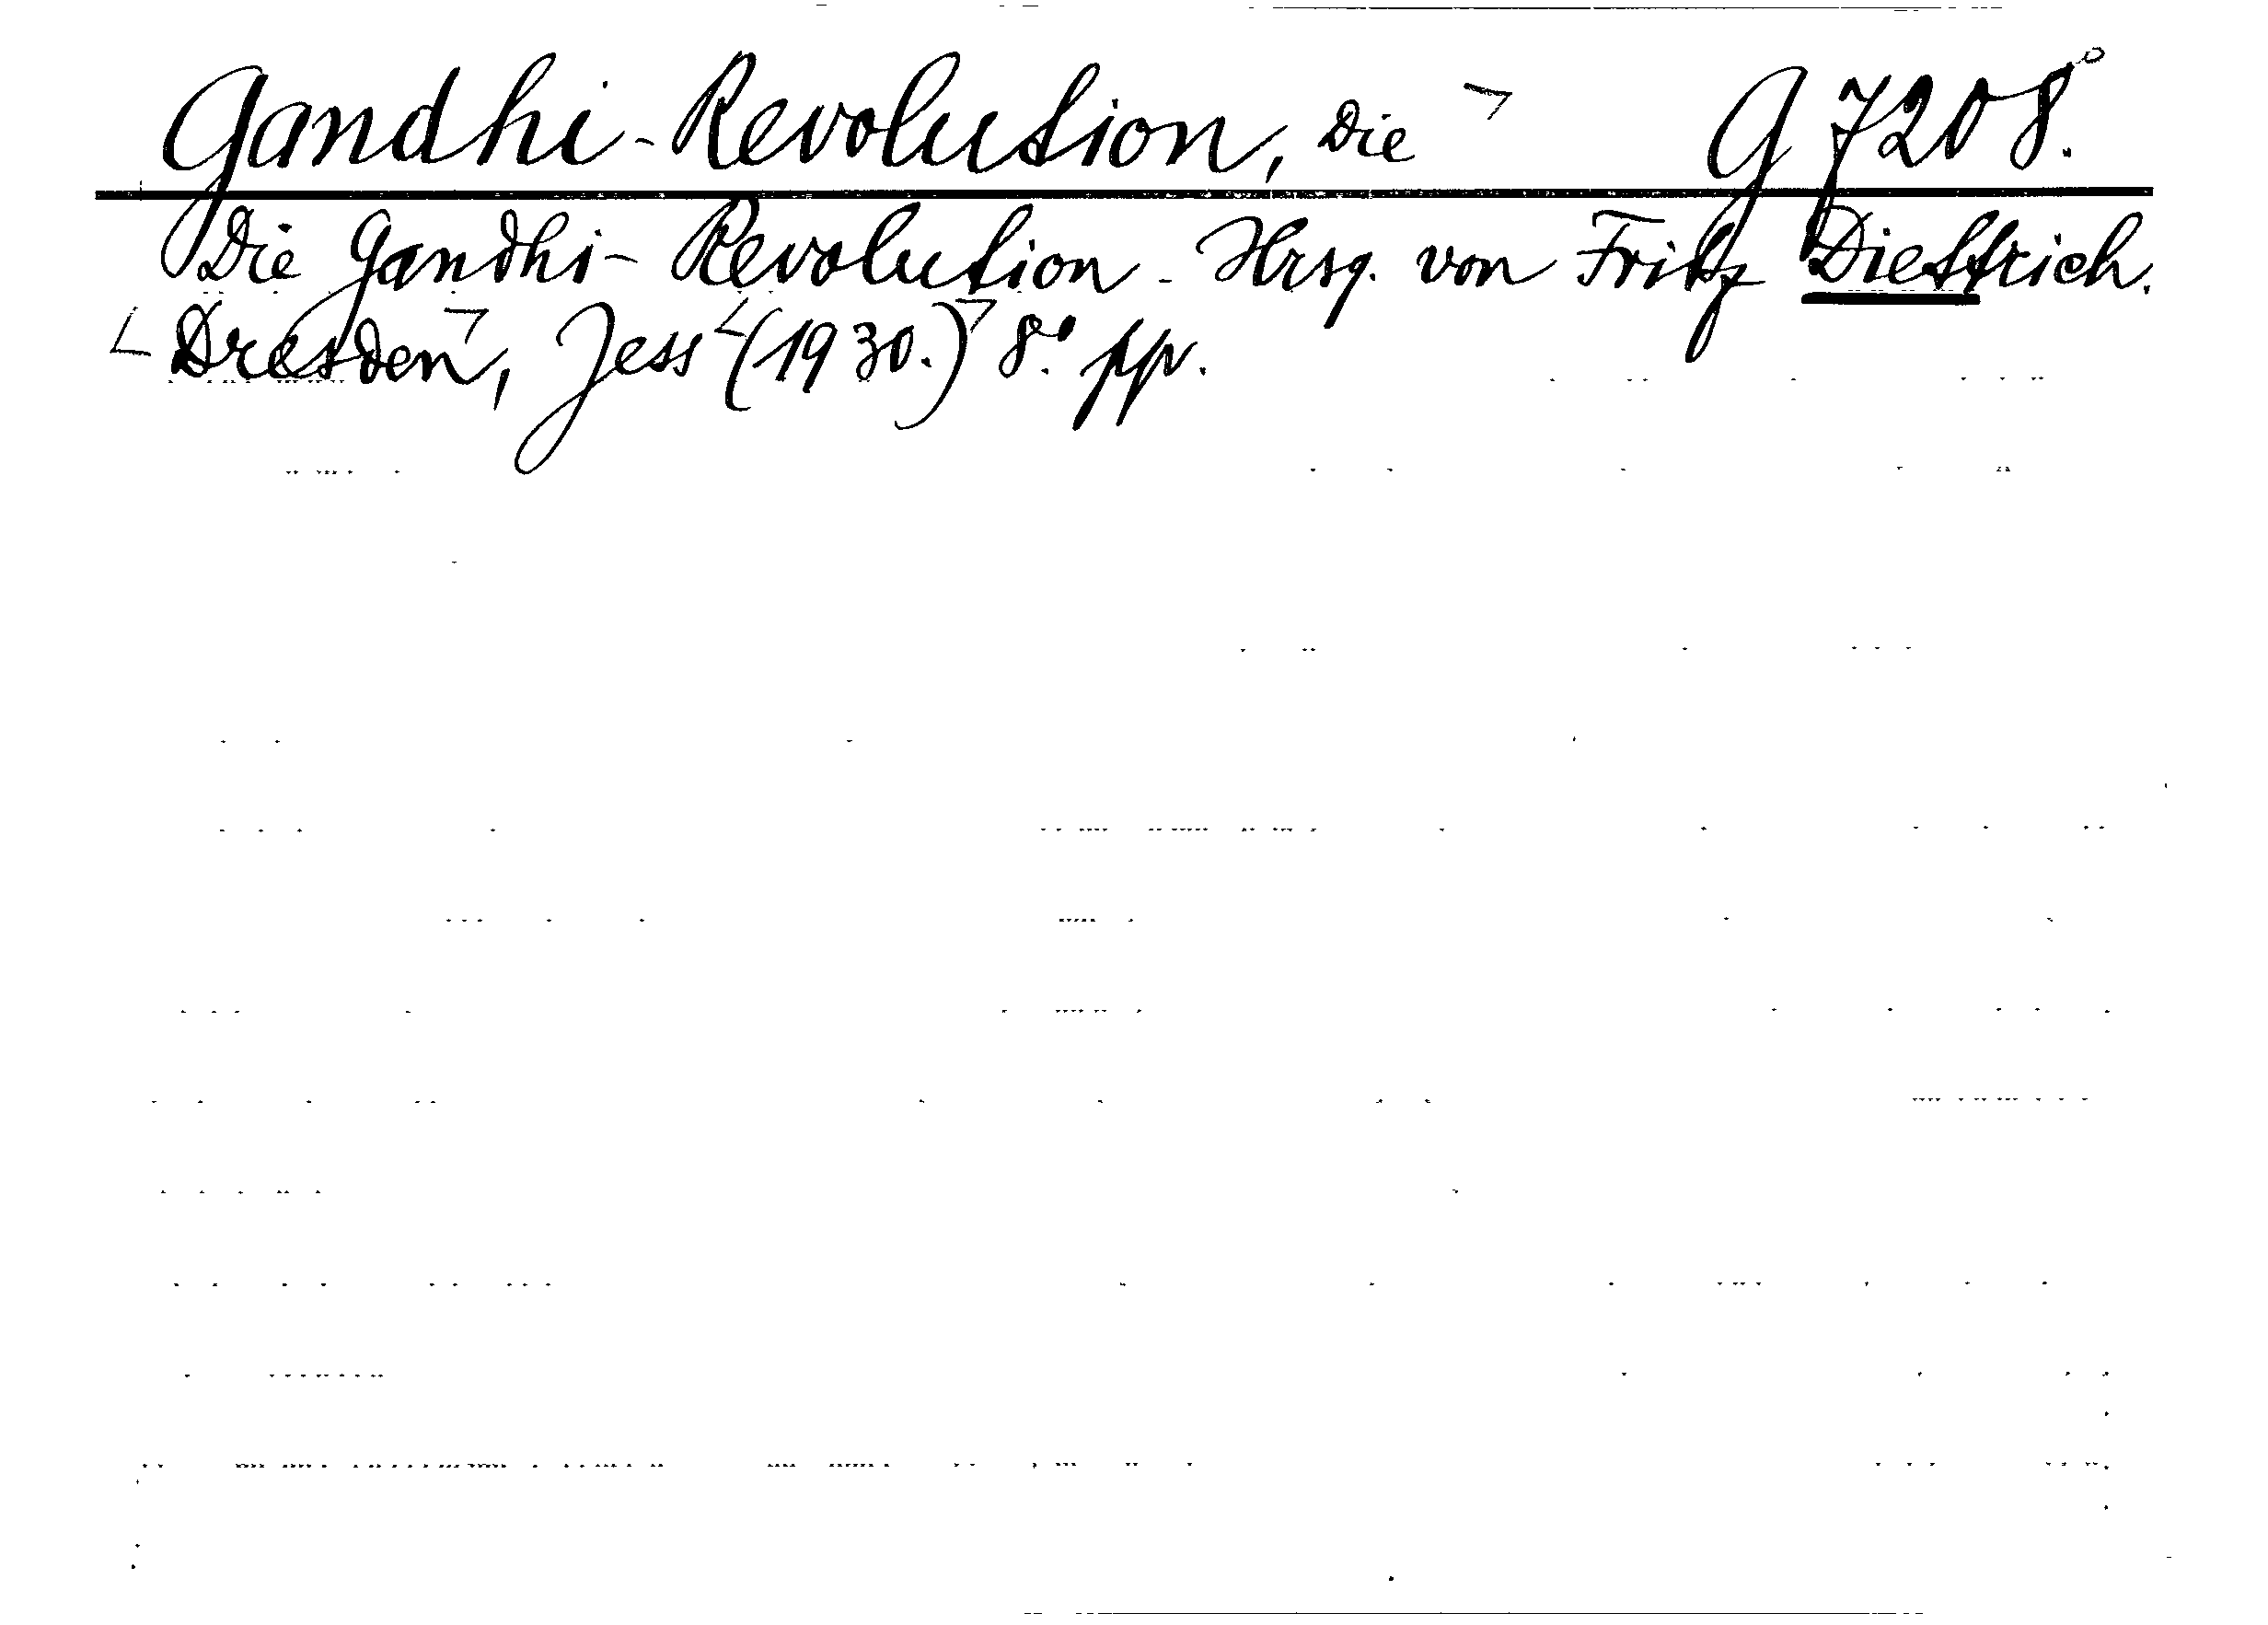 Gandhi-Revolution, Die ¬ G 7208.°
Die Gandhi-Revolution. Hrsg. von Fritz Diettrich.
∟Dresden¬, Jess ∠(1930.)¬ 8.° pp.